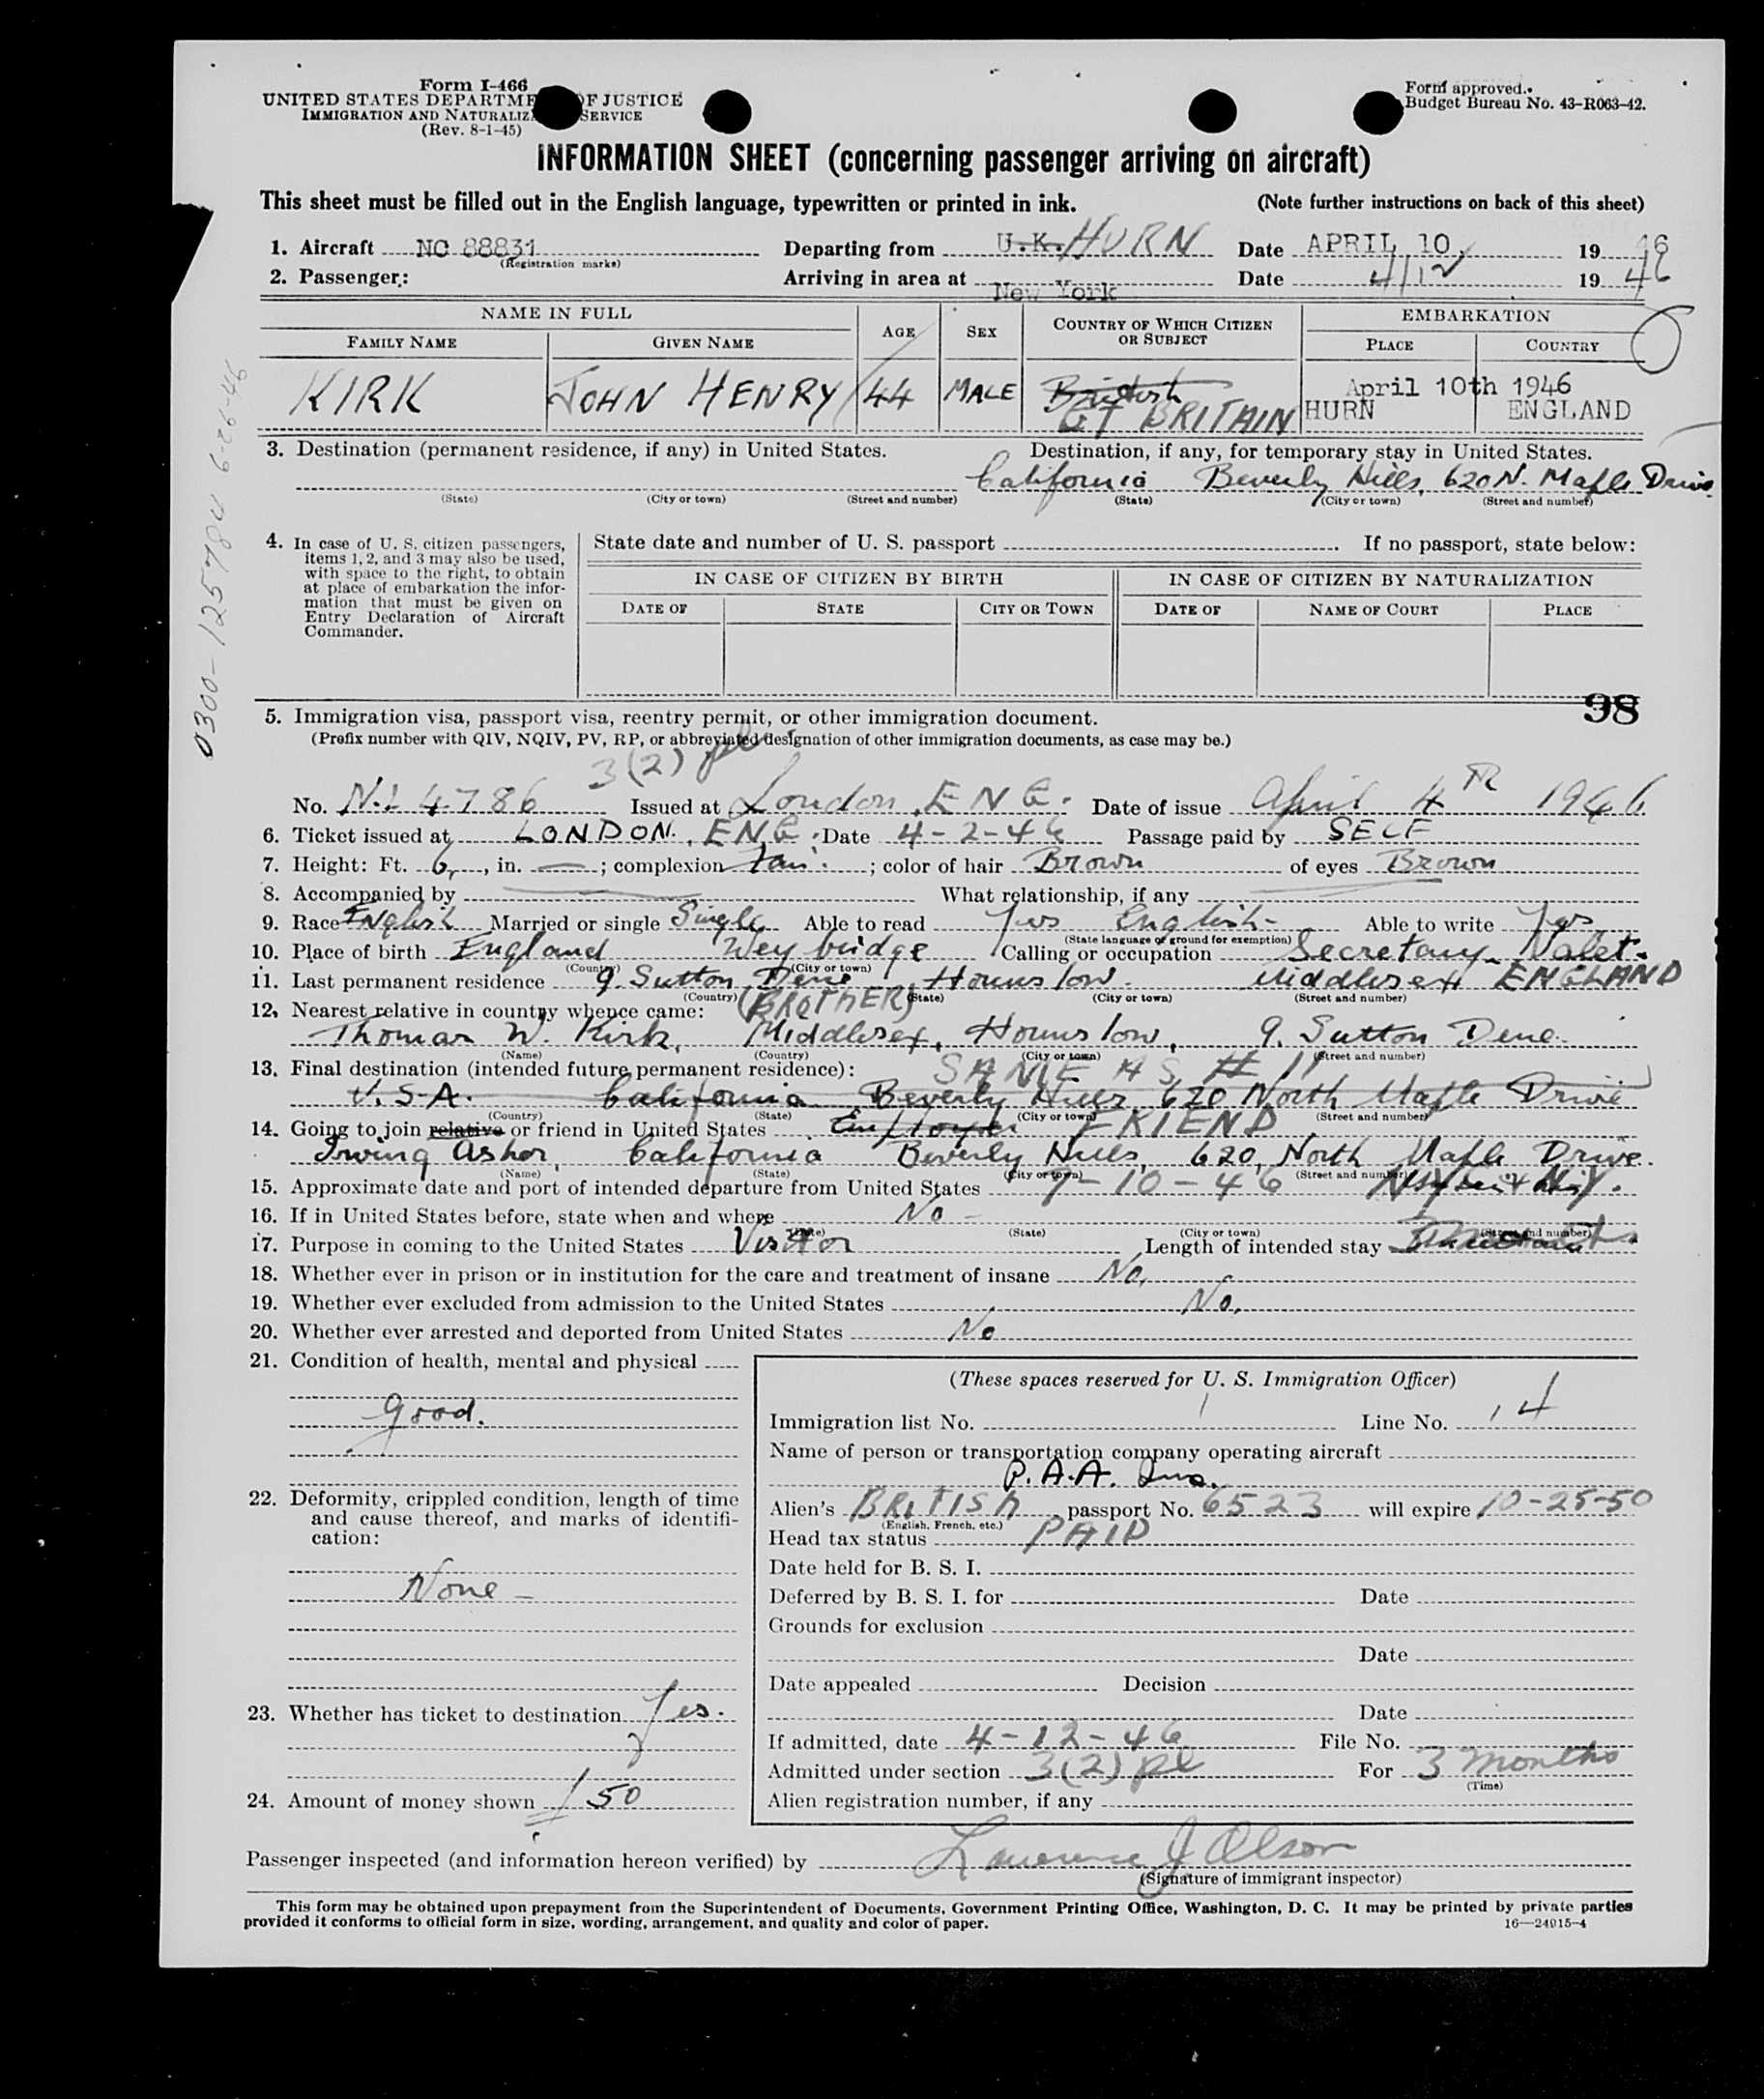 Form I-466
UNITED STATES DEPARTME OF JUSTICE
IMMIGRATION AND NATURALIZ SERVICE
(Rev. 8-1-45)
Form approved.
Budget Bureau No. 43-R063-42.
INFORMATION SHEET (concerning passenger arriving on aircraft)
This sheet must be filled out in the English language, typewritten or printed in ink. (Note further instructions on back of this sheet)
1. Aircraft NC 88831 Departing from U.K. HURN Date APRIL 10 1946
(Registration marks)
2. Passenger: Arriving in area at New York Date 4/12 1946
NAME IN FULL AGE SEX COUNTRY OF WHICH CITIZEN OR SUBJECT EMBARKATION
FAMILY NAME GIVEN NAME PLACE COUNTRY
KIRK JOHN HENRY 44 MALE British April 10th 1946
GT BRITAIN HURN ENGLAND
3. Destination (permanent residence, if any) in United States. Destination, if any, for temporary stay in United States.
California Beverly Hills, 620 N. Maple Drive
(State) (City or town) (Street and number) (State) (City or town) (Street and number)
4. In case of U. S. citizen passengers, items 1, 2, and 3 may also be used, with space to the right, to obtain at place of embarkation the information that must be given on Entry Declaration of Aircraft Commander.
State date and number of U. S. passport . If no passport, state below:
IN CASE OF CITIZEN BY BIRTH IN CASE OF CITIZEN BY NATURALIZATION
DATE OF STATE CITY OR TOWN DATE OF NAME OF COURT PLACE
98
0300-125784 6-26-46
5. Immigration visa, passport visa, reentry permit, or other immigration document.
(Prefix number with QIV, NQIV, PV, RP, or abbreviated designation of other immigration documents, as case may be.)
3(2) pl
No. N.I. 4786 Issued at London, ENG. Date of issue April 4TH 1946
6. Ticket issued at LONDON. ENG. Date 4-2-46 Passage paid by SELF
7. Height: Ft. 6, in. — ; complexion fair. ; color of hair Brown of eyes Brown
8. Accompanied by What relationship, if any
9. Race English Married or single Single Able to read Yes English- Able to write Yes
(State language or ground for exemption)
10. Place of birth England Weybridge Calling or occupation Secretary-Valet.
(Country) (City or town)
11. Last permanent residence 9. Sutton Dene, Hounslow. Middlesex ENGLAND
(Country) (State) (City or town) (Street and number)
12. Nearest relative in country whence came: (BROTHER)
Thomas W. Kirk, Middlesex, Hounslow, 9. Sutton Dene.
(Name) (Country) (City or town) (Street and number)
13. Final destination (intended future permanent residence): SAME AS # 11
U.S.A. California Beverly Hills 620 North Maple Drive
(Country) (State) (City or town) (Street and number)
14. Going to join relative or friend in United States Employer FRIEND
Irving Asher, California Beverly Hills, 620, North Maple Drive.
(Name) (State) (City or town) (Street and number)
15. Approximate date and port of intended departure from United States 7-10-46 N.Y.
16. If in United States before, state when and where No -
(Date) (State) (City or town) (Street and number)
17. Purpose in coming to the United States Visitor Length of intended stay
18. Whether ever in prison or in institution for the care and treatment of insane No.
19. Whether ever excluded from admission to the United States No.
20. Whether ever arrested and deported from United States No
21. Condition of health, mental and physical
Good.
22. Deformity, crippled condition, length of time and cause thereof, and marks of identification:
None -
23. Whether has ticket to destination Yes.
24. Amount of money shown 50
(These spaces reserved for U. S. Immigration Officer)
Immigration list No. 1 Line No. 14
Name of person or transportation company operating aircraft
P.A.A. Inc.
Alien's BRITISH passport No. 6523 will expire 10-25-50
(English, French, etc.)
Head tax status PAID
Date held for B. S. I.
Deferred by B. S. I. for Date
Grounds for exclusion
Date
Date appealed Decision
Date
If admitted, date 4-12-46 File No.
Admitted under section 3(2) pl For 3 months
(Time)
Alien registration number, if any
Passenger inspected (and information hereon verified) by Lawrence J Olson
(Signature of immigrant inspector)
This form may be obtained upon prepayment from the Superintendent of Documents, Government Printing Office, Washington, D. C. It may be printed by private parties
provided it conforms to official form in size, wording, arrangement, and quality and color of paper. 16—24915-4